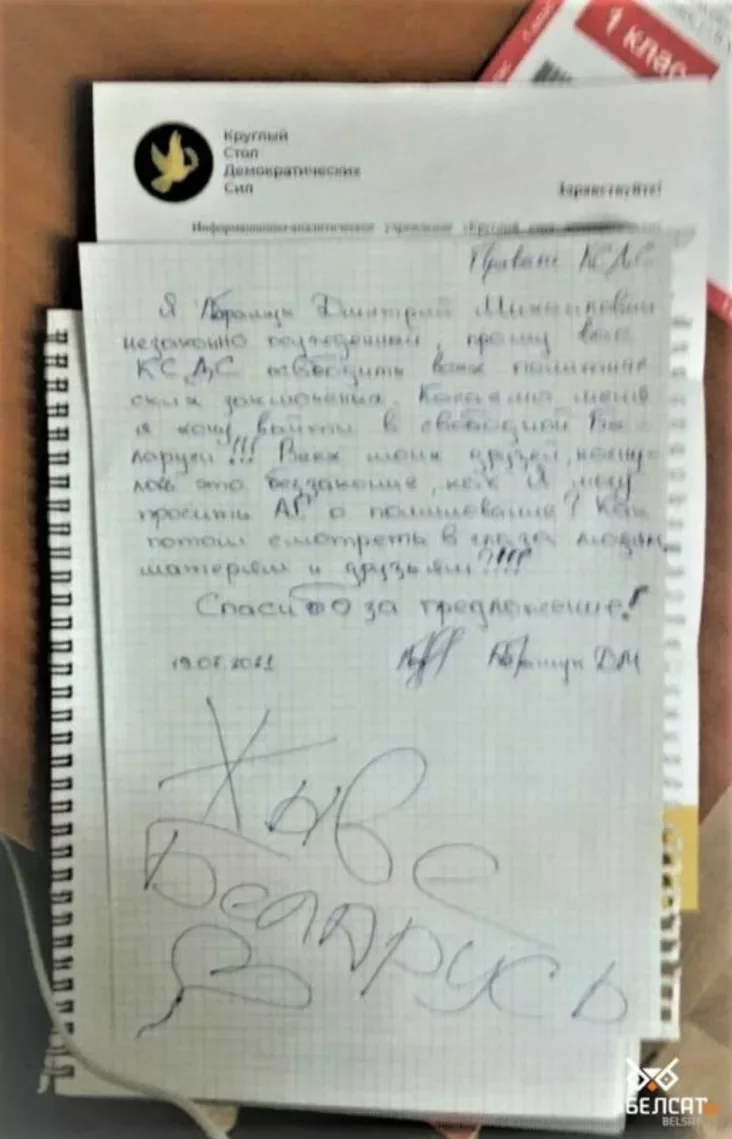 1 клас
Круглый
Стол
Демократических
Сил
Здравствуйте!
Информационно-аналитическое учреждение «Круглый стол
КСДС
Я Абрамук Дмитрий Михайлович
незаконно осужденный, прошу вас
КСДС освободить всех политиче
ских заключения. Касаемо меня
я хочу выйти в свободной Бе-
ларуси!!! Всех моих друзей, косну-
лось это беззаконие, как я могу
просить АГ о помилование? Как
потом смотреть в глаза людям,
матерям и друзьям?!!!!
Спасибо за предложение!
2021 Абрамук ДМ
Жыве
Беларусь
БЕЛСАТ
BELSAT